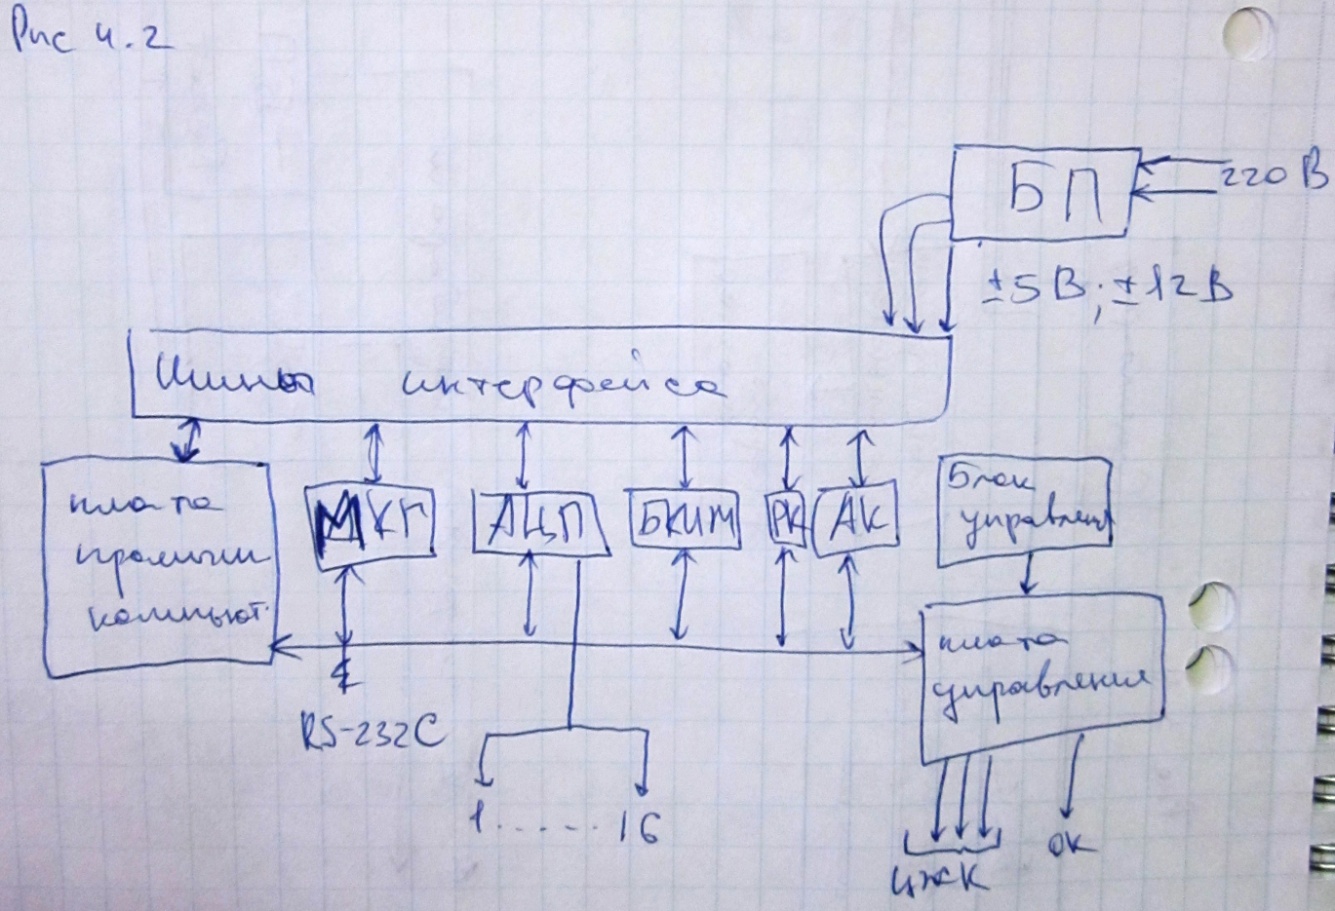 Рис 4.2
БП
220 В
±5 В; ±12 В
Шины интерфейса
плата
промышл
компьют.
МКГ
АЦП
БКИМ
РК
АК
Блок
управлен
плата
управления
RS-232C
1 . . . . . . 16
ЦЖК
ОК